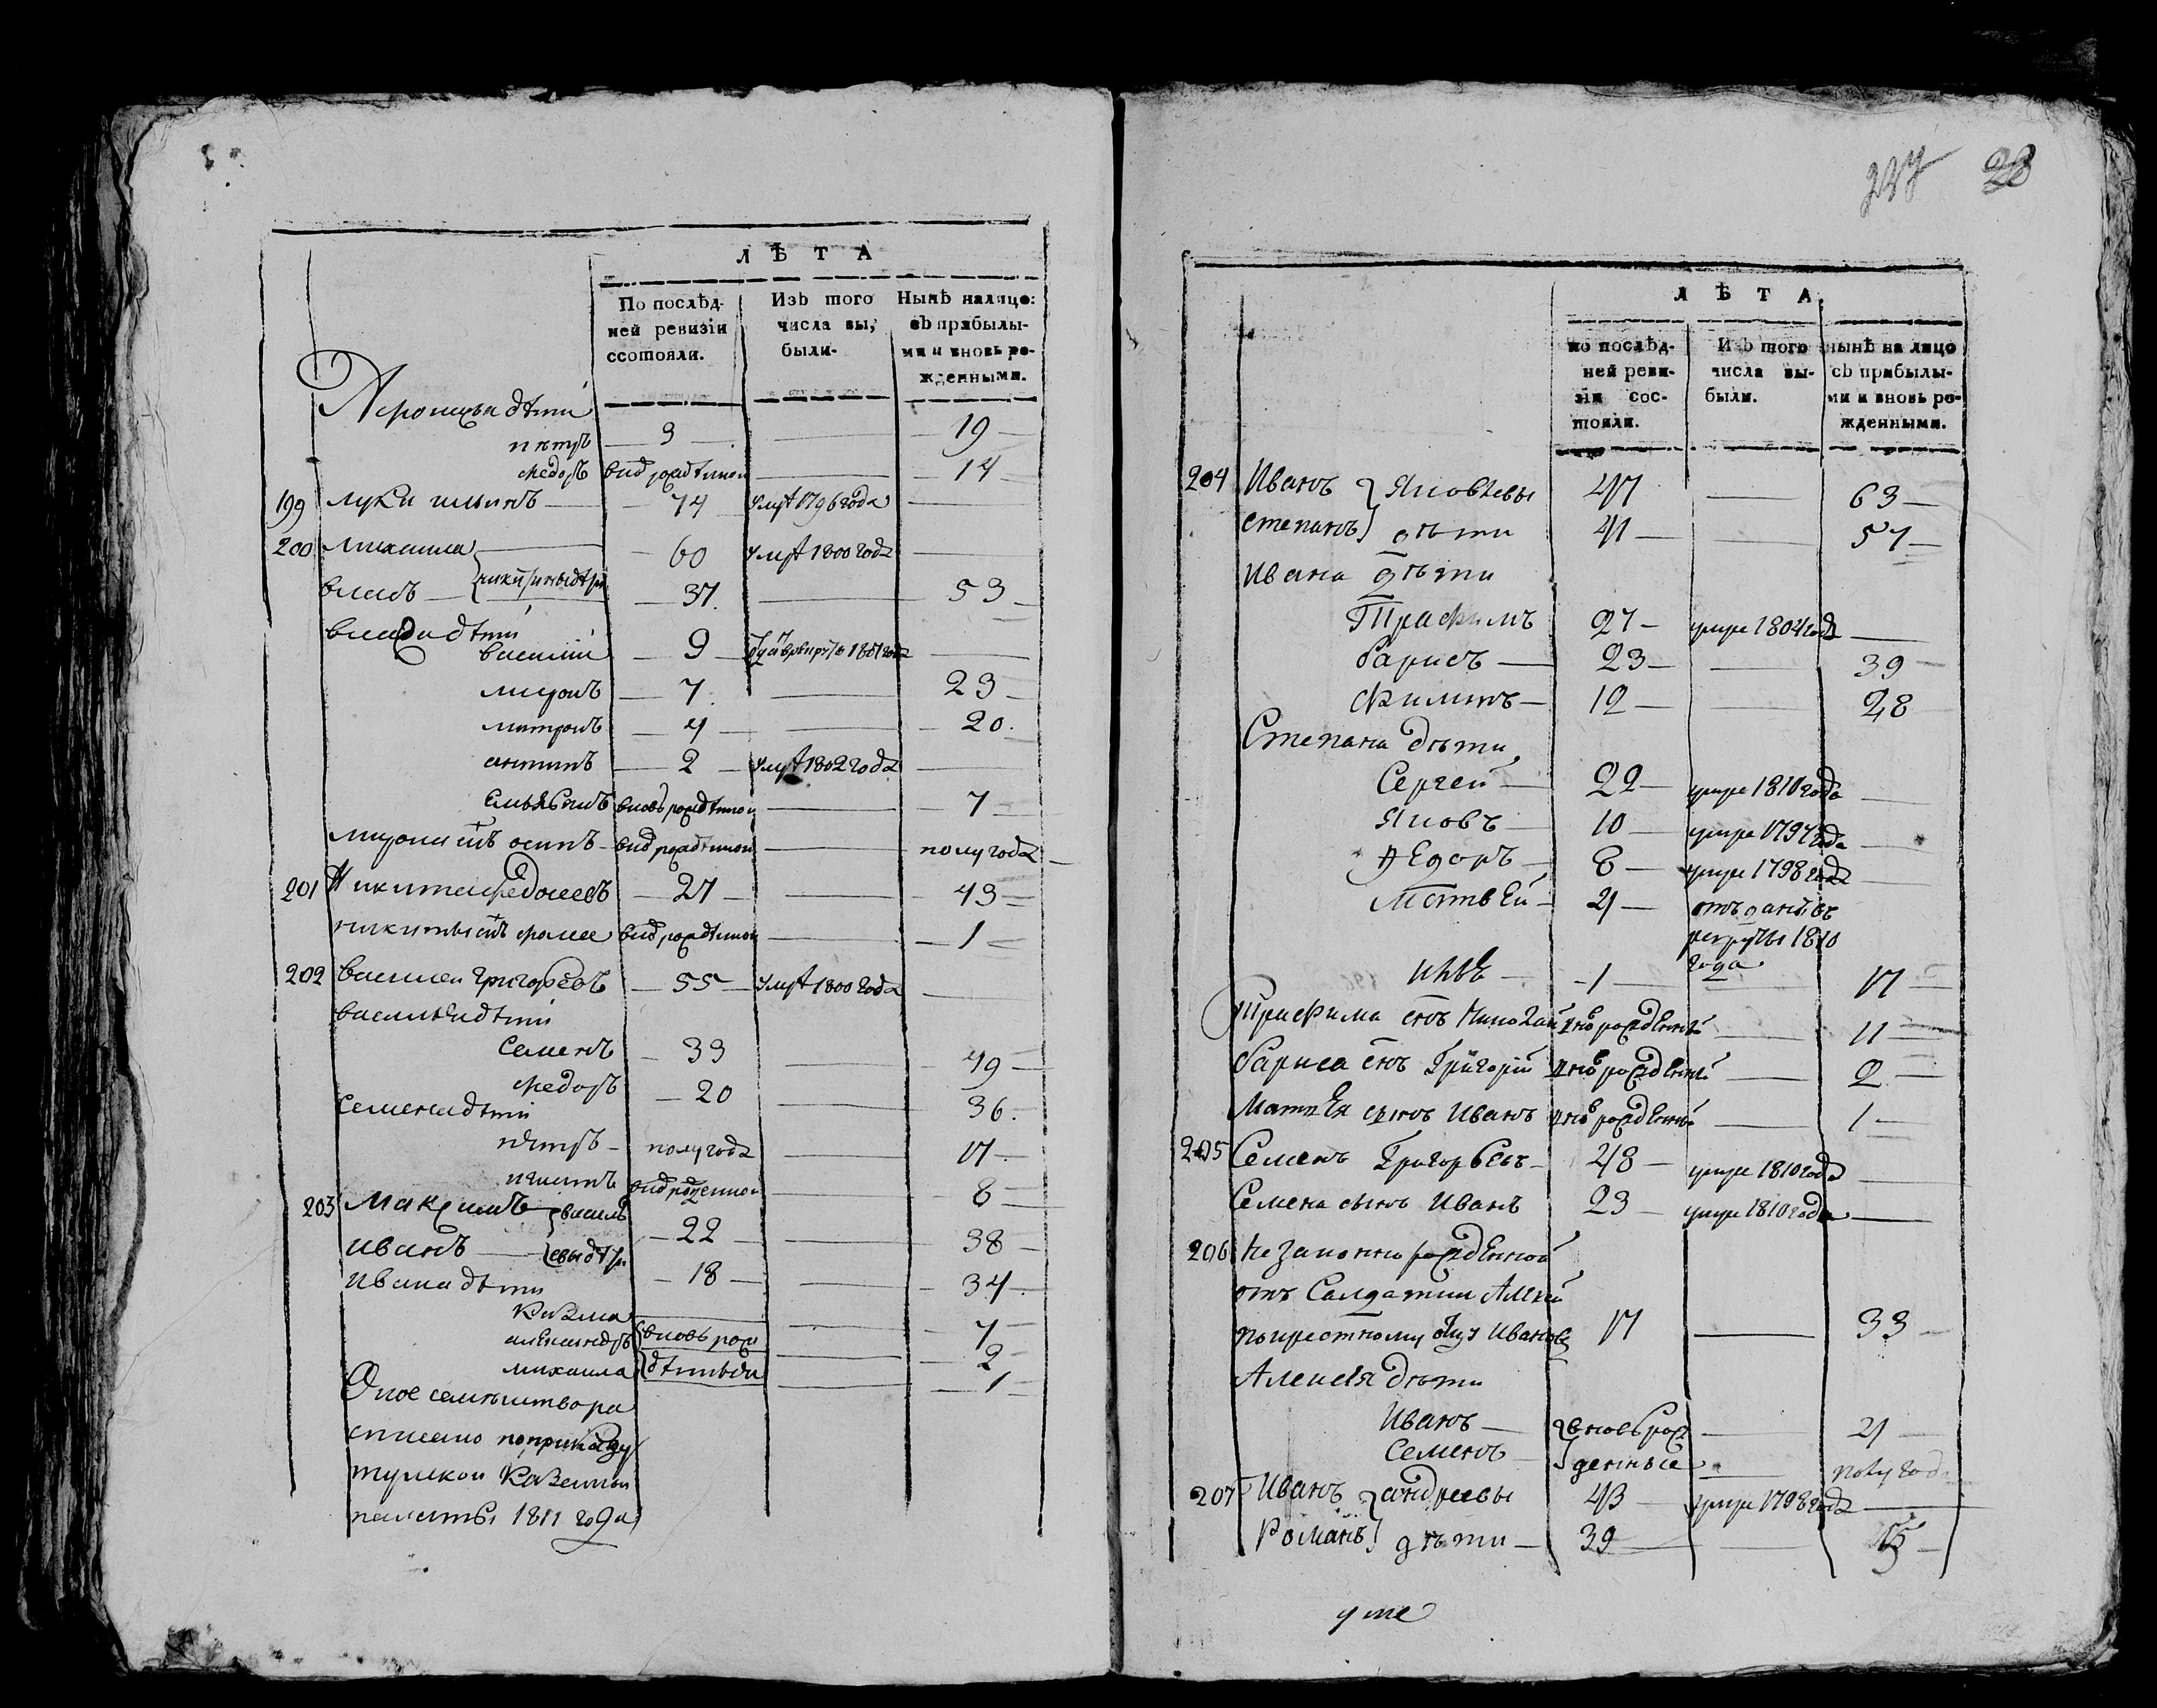 Л Ѣ Т А
По послѣд-
ней ревизіи
состояли.
Изъ того
числа вы,
были-
Нынѣ налицо:
съ прибылы-
ми и вновь ро-
жденными.
дѣти
петръ 3 19
федоръ 14
199 лука ильинъ 74 умре 1796 года
200 михаила 60 умре 1800 года
власъ 37. 53
власа дѣти
василій 9
миронъ 7. 23
митронъ 4 20.
антипъ 2 умре 1802 года
вновь рожденной 7
мирона сынъ осипъ полугода
201 Никита 27 43
никиты сынъ 1
202 василей григорьевъ 55 умре 1800 года
василья дѣти
семенъ 33 49
федоръ 20 36.
семена дѣти
петръ полугода 17
8
203 Максимъ 22 38
иванъ 18 34
ивана дѣти
Казма 7
александръ вновь рож 2
михаила денныи 1
Оное семейство
списано по приказу
тулской Казенной
палаты 1811 года
237 28
Л Ѣ Т А
по послѣд-
ней реви-
зіи сос-
тояли.
Изъ того
числа вы-
были.
нынѣ на лицо
съ прибылы-
ми и вновь ро-
жденными.
204 Иванъ } Яковлевы 47 63
степанъ } дѣти 41 57
ивана дѣти
Трафимъ 27 умре 1804 года
барисъ 23 39
Филипъ 12 28
Степана дѣти
Сергей 22 умре 1810 года
Яковъ 10 умре 1797 года
Федоръ 8 умре 1798 года
Матвей 4 отъданъ въ
рекруты 1810
года
1 17
Трафима снъ Николай вновь рожденной 11
бариса снъ Григорій вновь рожденной 2
Матвея сынъ Иванъ вновь рожденной 1
205 Семенъ Григорьевъ 48 умре 1810 года
Семена сынъ Иванъ 23 умре 1810 года
206 Незаконно рожденной
отъ Салдатки Алекей
покрестному отцу Ивановъ 17 33
Алексея дѣти
Иванъ } вновь рож 4
Семенъ } денные полугода
207 Иванъ } андреевы 43 умре 1798 года
Романъ } дѣти 39